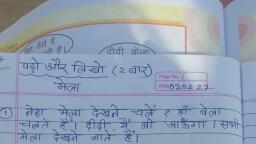 दीदी केला
पढ़ो और लिखो (2 बार)
मेला
Page No. 1
Date 020222
1 नेहा मेला देखने चलें ? हाँ बेला
चलते हैं। दीदी मैं भी जाऊँगा। सभी
मेला देखने जाते हैं।